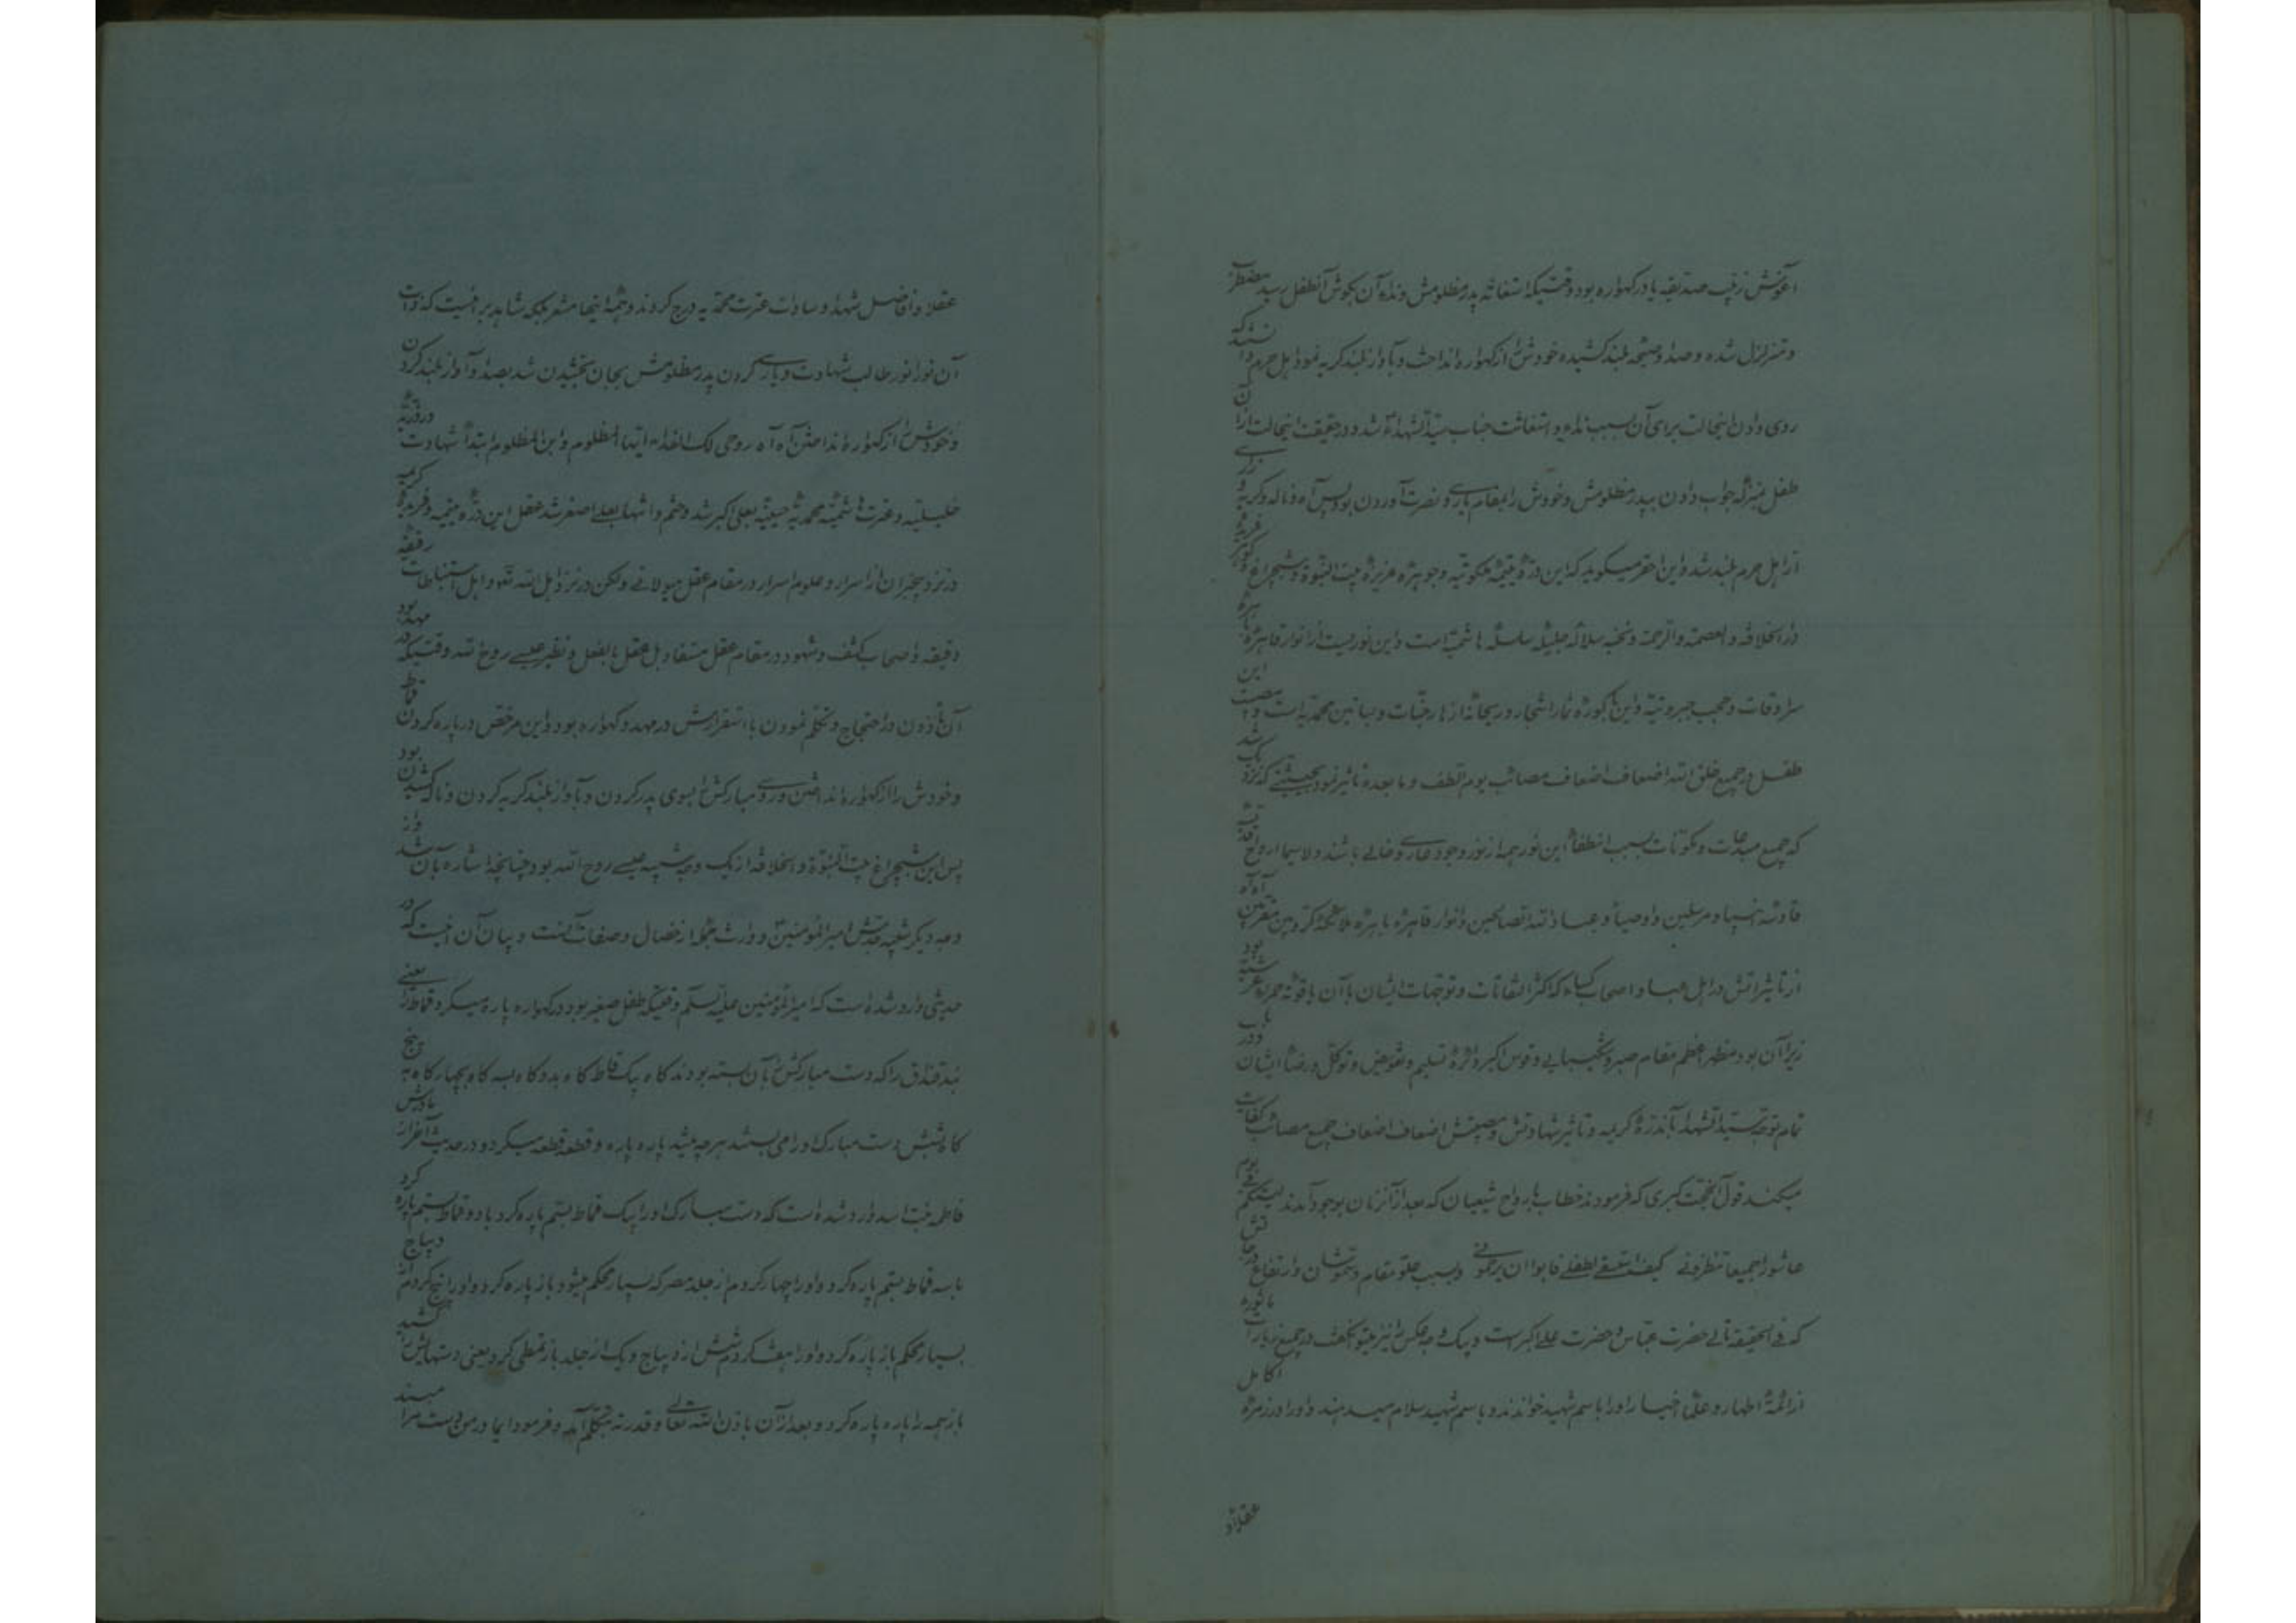 آغوش زینب صدیقه یا در کهواره بود وقتیکه استغاثه پدر مظلومش و نداء آن بکوش آنطفل رسید مضطرب
و متزلزل شده و صدا و صیحه بلند کشیده خودش را از کهواره انداخت و بآواز بلند کریه نمود اهل حرم دانستند که
روی دادن اینحالت برای آن بسبب نداء و استغاثت جناب سید الشهداء شد و در حقیقت اینحالت از آن
طفل بمنزله جواب دادن پدر مظلومش و خودش را بمقام یاری و نصرت آوردن بود پس آه و ناله و کریه و زاری
از اهل حرم بلند شد و این احقر میکوید که این دره یتیمه ملکوتیه و جوهره عزیزه بیت النبوة و شبچراغ
دار الخلافه و العصمه و الرحمه و نخبه سلاله جلیله سلسله هاشمیه است و این نوریست از انوار قاهره باهره
سرادقات و حجب جبروتیه و این باکوره ثمار اشجار و ریحانه ازهار جنات و بساتین محمدیه است و مصیبت این
طفل در جمیع خلق الله اضعاف اضعاف مصائب یوم الطف و ما بعده تاثیر نمود بحیثیتی که نزدیک شد
که جمیع مبدعات و مکونات بسبب انطفاء این نور همه از نور وجود عاری و خالی باشند و لاسیما ارواح
قادسه انبیا و مرسلین و اوصیاء و عباد الله الصالحین و انوار قاهره باهره ملائکه کروبین مقربین آه آه
از تاثیراتش در اهل عبا و اصحاب کساء که اکثر التفاتات و توجهات ایشان بآن یاقوته حمراء عرشیه بود
زیرا آن بود مظهر اعظم مقام صبر و شکیبایی و قوس اکبر دائره تسلیم و تفویض و توکل و رضاء ایشان و در باب
تمام توجه سید الشهداء بآندره کریمه و تاثیر شهادتش و مصیبتش اضعاف اضعاف جمیع مصائب کفایت
میکند قول آنحجت کبری که فرمودند خطاب بارواح شیعیان که بعد از آنزمان بوجود آمدند لیتکم فی یوم
عاشورا جمیعا تنظرونی کیف استسقی لطفلی فابوا ان یرحمونی و بسبب علو مقام و سمو شان و ارتفاع درجاتش
که فی الحقیقه تالی حضرت عباس و حضرت علی اکبر است و یک وجه عکس را نیز میتوان گفت در جمیع زیارات ماثوره
از ائمه اطهار و علماء اخیار او را باسم شهید خواندند و باسم شهید سلام میدهند و او را در زمره اکامل
عقلاء و
عقلاء و افاضل شهدا و سادات عترت محمدیه درج کردند و همه اینها مشعر بلکه شاهد بر اینست که ذات
آن نور انور طالب شهادت و یاری کردن پدر مظلومش بجان بخشیدن شد بصدا و آواز بلند کردن
و خودش را از کهواره انداختن آه آه روحی لک الفداء ایها المظلوم و ابن المظلوم ابتداء شهادت در ذریه
خلیلیه و عترت هاشمیه محمدیه حسینیه بعلی اکبر شد و ختم و انتها بعلی اصغر شد عقل این دره یتیمه و فریده کریمه
در نزد بیخبران از اسرار و علوم اسرار در مقام عقل هیولانی ولکن در نزد اهل الله تعالی و اهل استنباطات رفیقه
دقیقه و اصحاب کشف و شهود در مقام عقل مستفاد بل عقل بالفعل و نظیر عیسی روح الله وقتیکه در مهد بود
آن ماذون در احتجاج و تکلم نمودن با استقرارش در مهد و کهواره بود و این مرخص در پاره کردن قماط
و خودش را از کهواره انداختن و روی مبارکش را بسوی پدر کردن و بآواز بلند کریه کردن و ناله کشیدن بود
پس این شبچراغ بیت النبوة و الخلافه از یک وجه شبیه عیسی روح الله بود چنانچه اشاره بآن شد و از
وجه دیگر شبیه جدش امیر المؤمنین و وارث جمله از خصال و صفات آنست و بیان آن اینست که در
حدیثی وارد شده است که امیر المؤمنین علیه السلم وقتیکه طفل صغیر بود در کهواره پاره میکرد قماط را یعنی
بند قنداق را که دست مبارکش را بآن بسته بودند کاه بیک قماط کاه بدو کاه بسه کاه بچهار کاه به پنج
کاه بشش دست مبارک او را می بستند هر چه میشد پاره پاره و قطعه قطعه میکرد و در حدیث آخر از مادرش
فاطمه بنت اسد وارد شده است که دست مبارک او را بیک قماط بستم پاره کرد با دو قماط بستم پاره کرد
با سه قماط بستم پاره کرد و او را چهار کردم از جلد مصر که بسیار محکم میشود باز پاره کرد و او را پنج کردم از دیباج
بسیار محکم باز پاره کرد و او را هفت کردم شش از دیباج و یک از جلد باز تمطی کرد یعنی دستهایش را کشید
باز همه را پاره پاره کرد و بعد از آن باذن الله تعالی و قدرته بتکلم آمد و فرمود ای مادر من دست مرا مبند